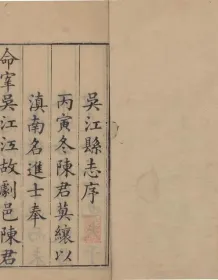 吳江縣志序
丙寅冬陳君莫纕以
滇南名進士奉
命宰吳江江故劇邑陳君